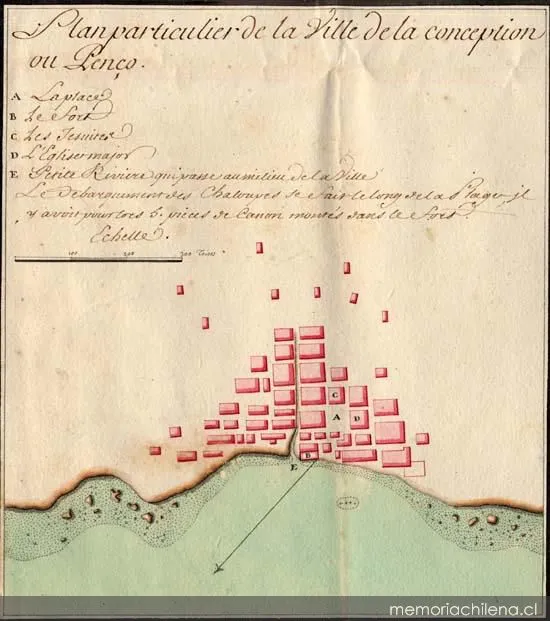 Plan particulier de la Ville de la conception
ou Penço.
A La place
B Le Fort
C Les Jesuites
D L'Eglise major
E Petite Riviere qui passe au milieu de la Ville
Le Debarquement des Chaloupes se fait le long de la Plage il
y avoit pour lors 5. pièces de Canon montés dans le Fort
Echelle.
100 200 300 Toises
C
A D
B
E
memoriachilena.cl